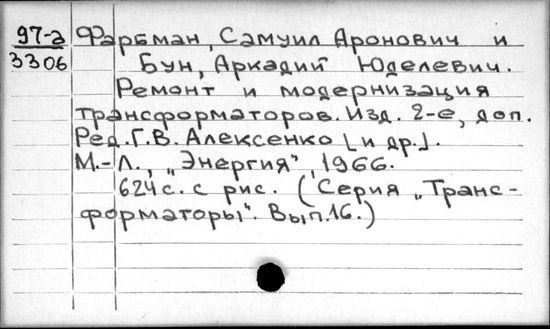 97-а Фарбман, Самуил Аронович и
3306 Бун, Аркадий Юделевич.
Ремонт и модернизация
трансформаторов. Изд. 2-е, доп.
Ред. Г.В. Алексенко [и др.].
М.-Л., „Энергия", 1966.
624 с. с рис. (Серия „Транс-
форматоры". Вып. 16.)